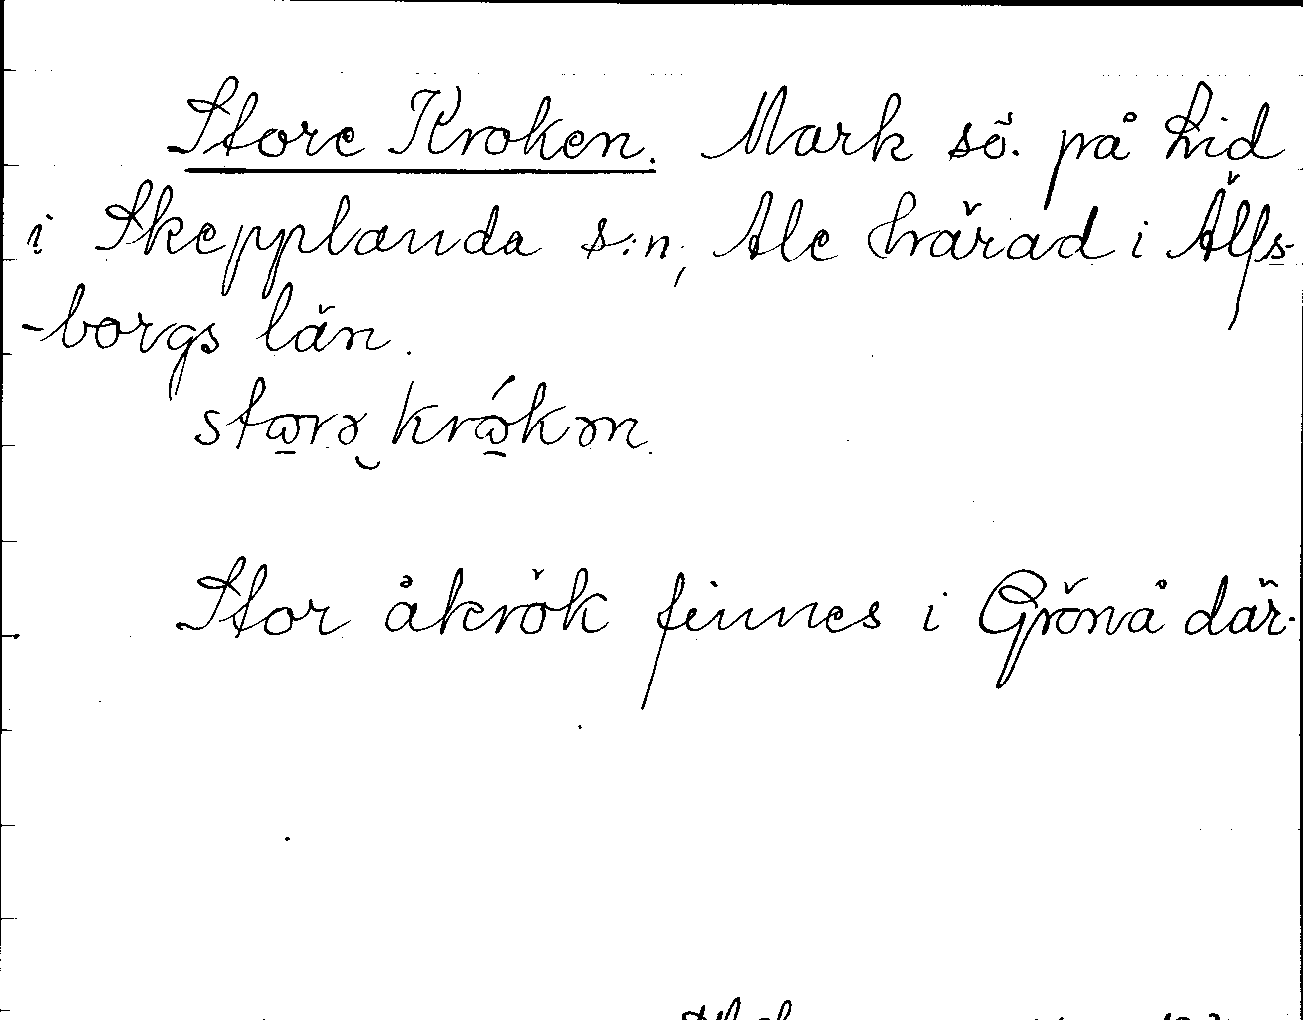 Store Kroken. Mark sö. på Lid
i Skepplanda s:n, Ale härad i Älfs-
-borgs län.
Stor åkrök finnes i Grönå där.